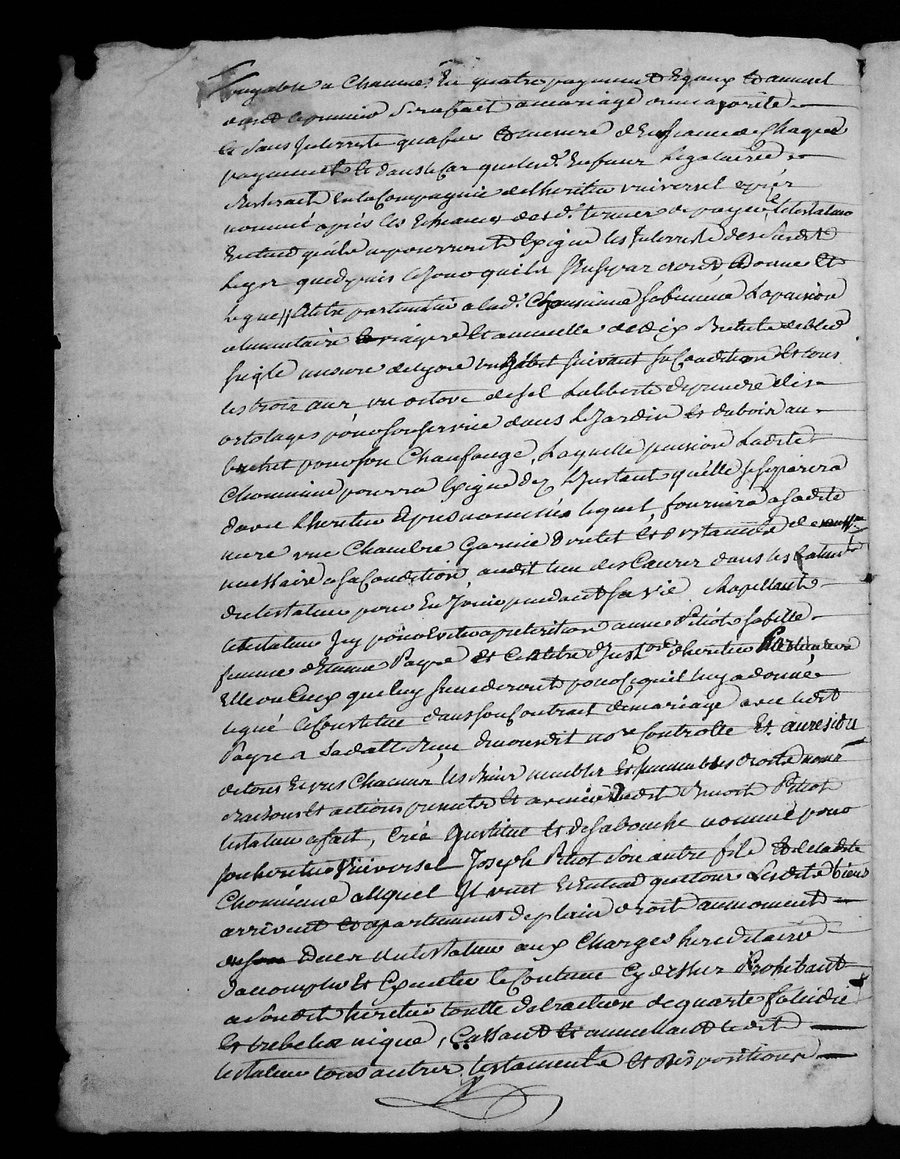 payable a Chacun En quatre payement Egaux Et annuel
dont le premier Se rafait a mariage ou majorite
Et Sans Interrets qua fur Et mesure d'Echeance de Chaque
payement Et dans le Cas que lesd. Enfans Legataires
Resteraient En la Compagnie de l'heritier universel apres
nommé apres les Echeances desd. termes de payer le testateur
Entend qu'ils ne pourront Exiger les Interrets des Susdits
Legs que depuis le Jour qu'ils Se Separeront, Donne Et
Legue // a titre particulier a lad. Chominine sa femme La pension
alimentaire Et annuelle de dix Bichets de bled
Seigle mesure de un habit suivant sa Condition Et tous
les trois ans un octave de sel La liberté de prendre des
ortolages pour son service dans Le Jardin Et du bois au
bûcher pour son Chaufange, Laquelle pension Ladite
Chominine pourra Exiger dez L'Instant qu'elle se separera
d'avec L'heritier apres nommé lequel fournira a sadite
mere une Chambre Garnie Et d'ustancile
necessaire a sa Condition, audit lieu dans les
du testateur pour En Jouir pendant sa vie. Rapellant
le testateur Icy pour Eviter a pretérition anne Petiot sa fille
femme d'Etienne Payre Et a titre d'Inst.on d'heritiere Particuliere
Elle ou Ceux que luy succederont pour Ce qu'il luy a donné
legué Et Constitué dans son Contrat de mariage avec ledit
Payre a Sa datte Reçu de moy dit no.re Controllé Et au residu
de tous Et uns Chacuns ses biens meubles Et Immeubles droits noms
raisons Et actions presents Et a venir Ledit Benoit Petiot
testateur a fait, Créé Institué Et de sa bouche nommé pour
son heritier Universel Joseph Petiot Son autre fils Et de ladite
Chominine auquel Il veut Et Entend que tous Lesdits biens
arrivent Et apartiennent de plain droit au moment
du Deces du testateur aux Charges hereditaires
d'accomplir Et Executer le Contenu Cy dessus Prohibant
a Sondit heritier toutte detraction de quarte falcidie
Et trebelianique, Cassant Et annullant ledit
testateur tous autres testaments Et dispositions